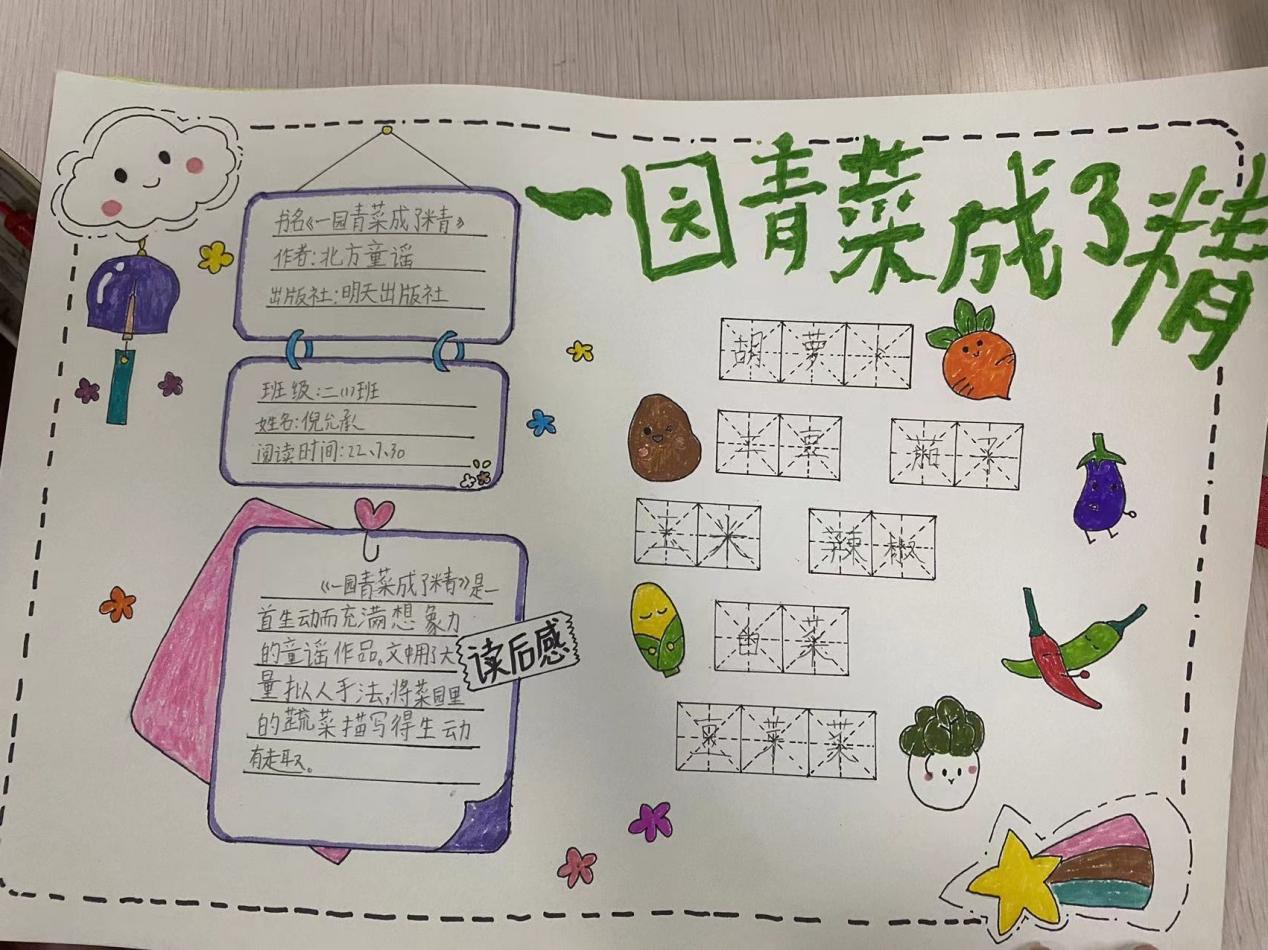 一园青菜成了精
书名《一园青菜成了精》
作者:北方童谣
出版社:明天出版社
班级:二(1)班
姓名:倪允承
阅读时间:22、1、30
《一园青菜成了精》是一
首生动而充满想象力
的童谣作品。文中用了大
量拟人手法,将菜园里
的蔬菜描写得生动
有趣。
读后感
胡萝卜
土豆
茄子
玉米
辣椒
白菜